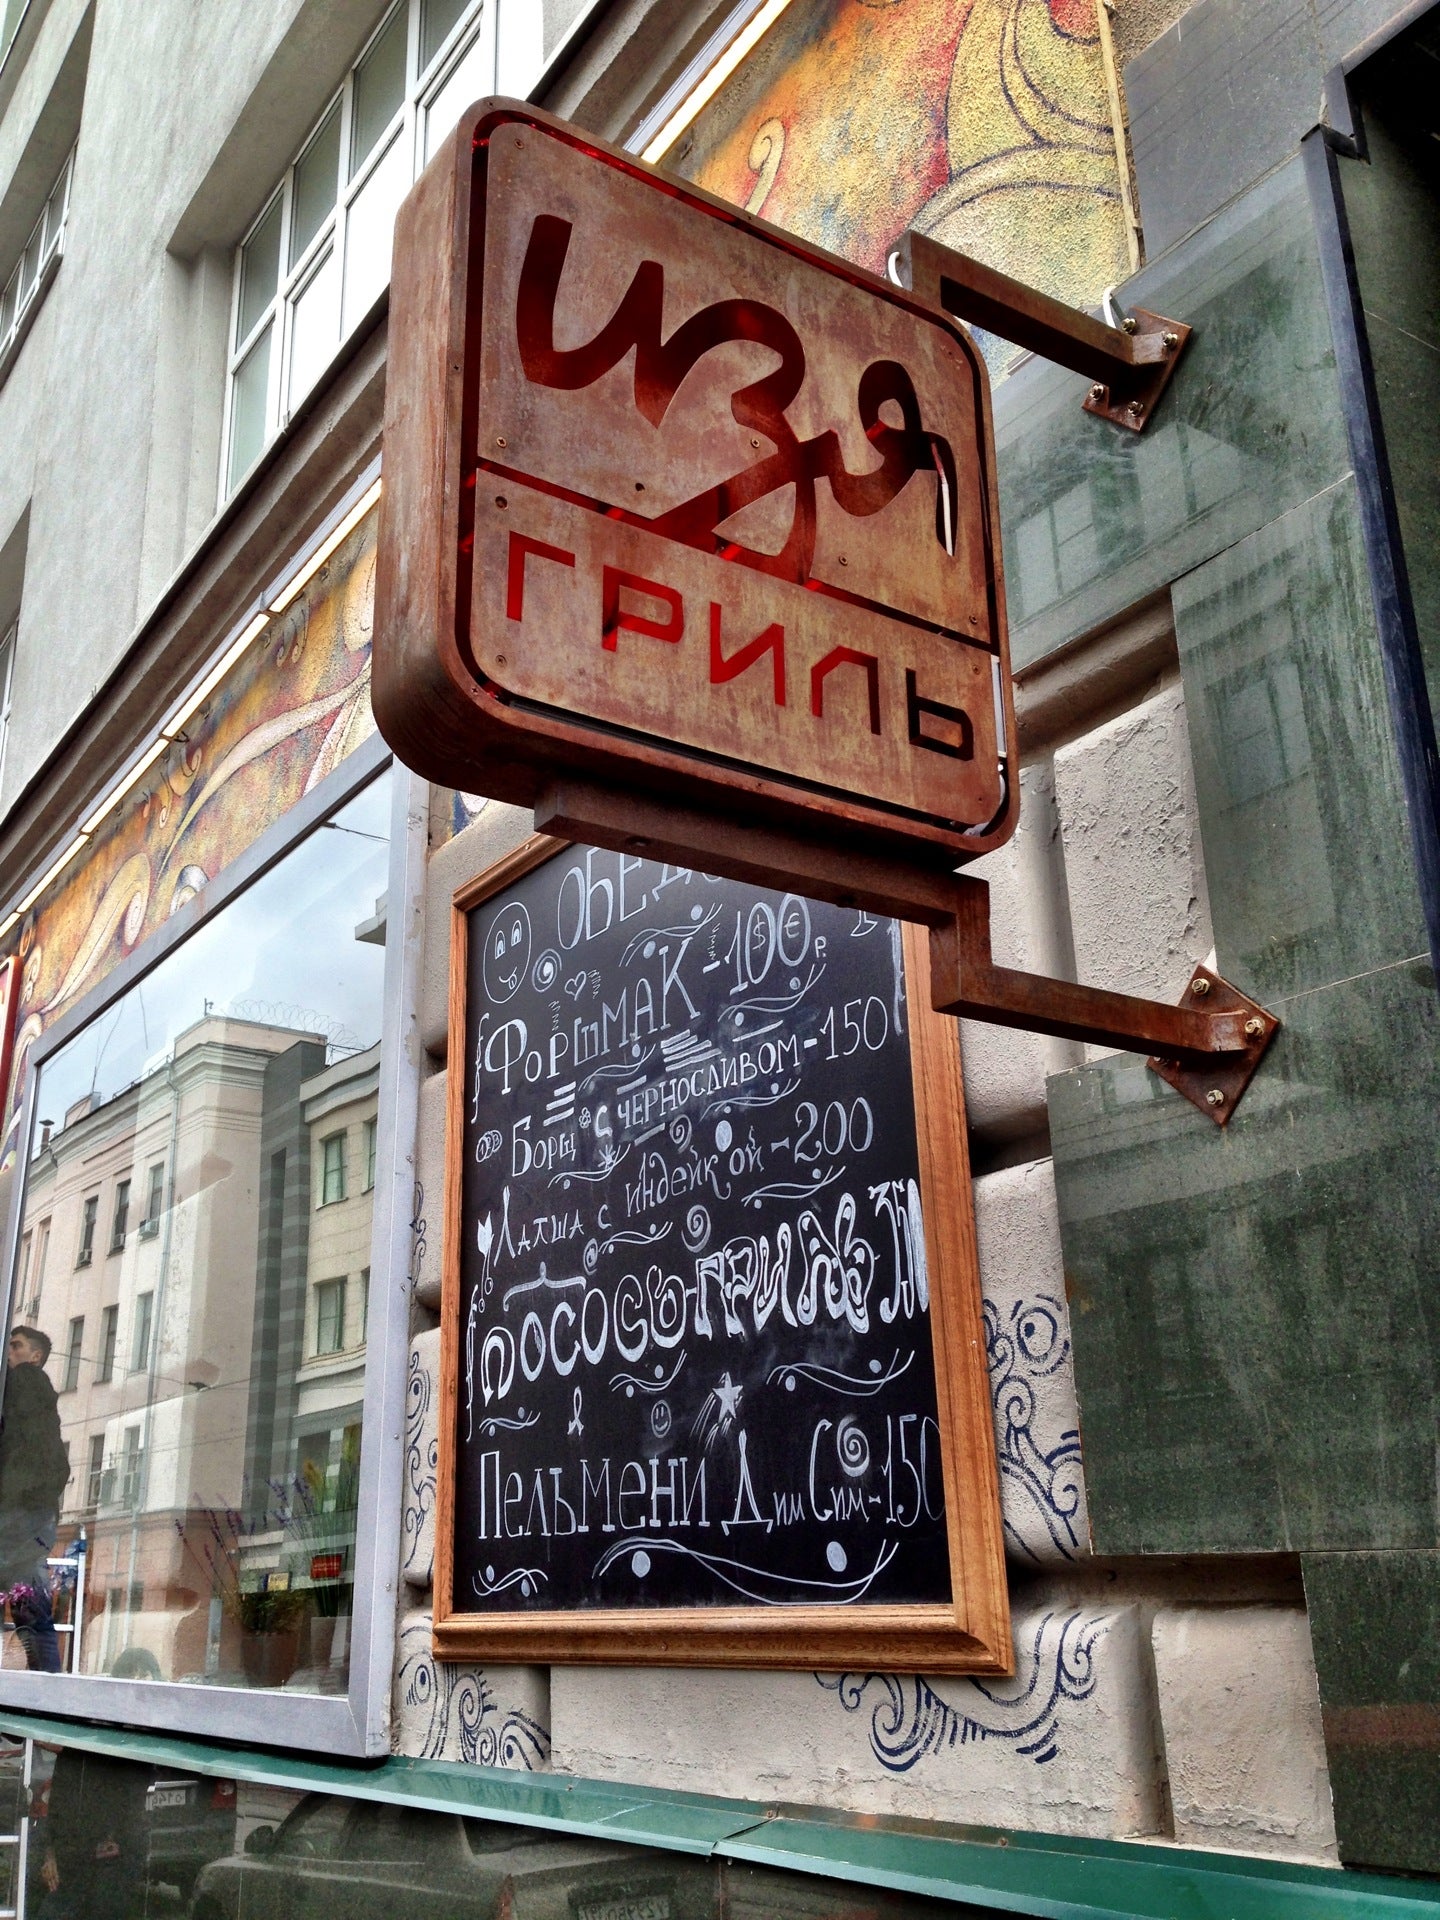 Изя
ГРИЛЬ
Форшмак - 100 $ € р.
Борщ с черносливом - 150
Лапша с индейкой - 200
Лосось-гриль 350
Пельмени Дим Сим - 150